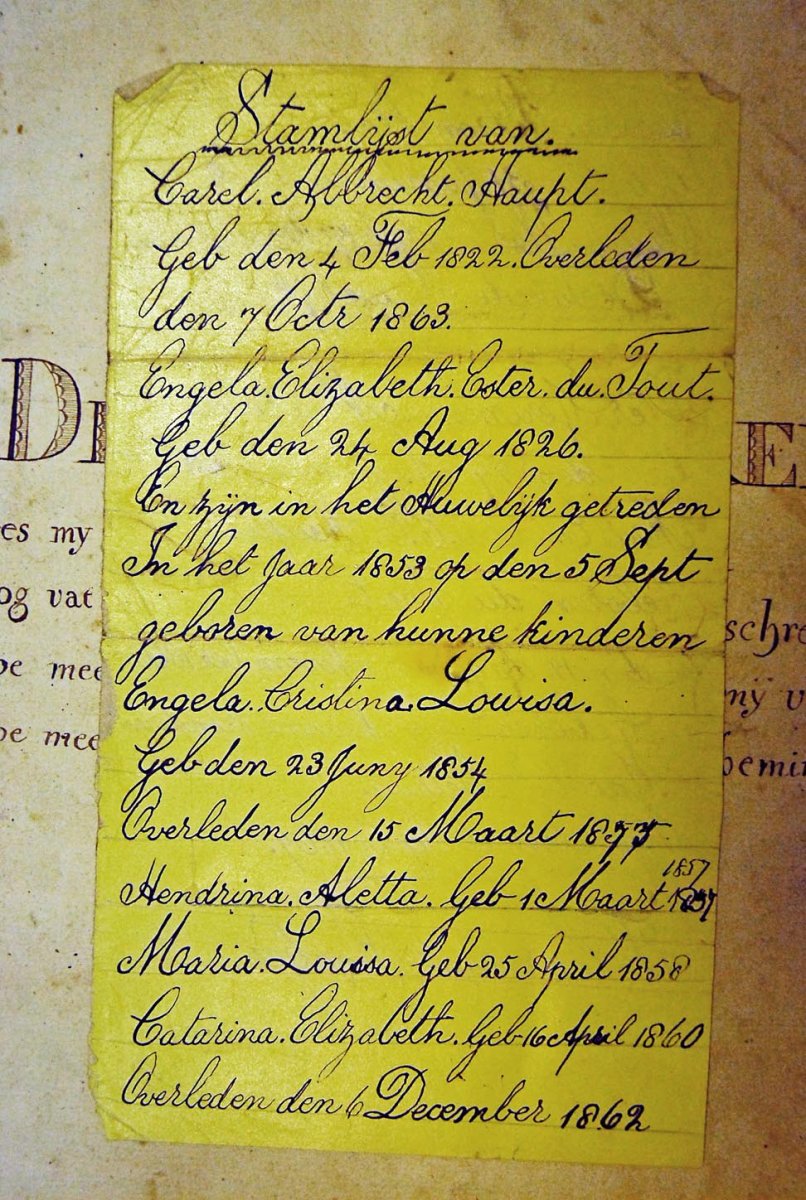 Stamlijst van.
Carel. Albrecht. Haupt.
Geb den 4 Feb 1822. Overleden
den 7 Octr 1863.
Engela. Elizabeth. Ester. du. Tout.
Geb den 24 Aug 1826.
En zijn in het Huwelijk getreden
In het Jaar 1853 op den 5 Sept
geboren van hunne kinderen
Engela. Cristina. Lowisa.
Geb den 23 Juny 1854
Overleden den 15 Maart
Hendrina. Aletta. Geb 1 Maart 1857
Maria. Louisa. Geb 25 April 1858
Catarina. Elizabeth. Geb 16 April 1860
Overleden den 6 December 1862
D
es my
og vat
oe mee
oe mee
schre
mÿ v
oemin